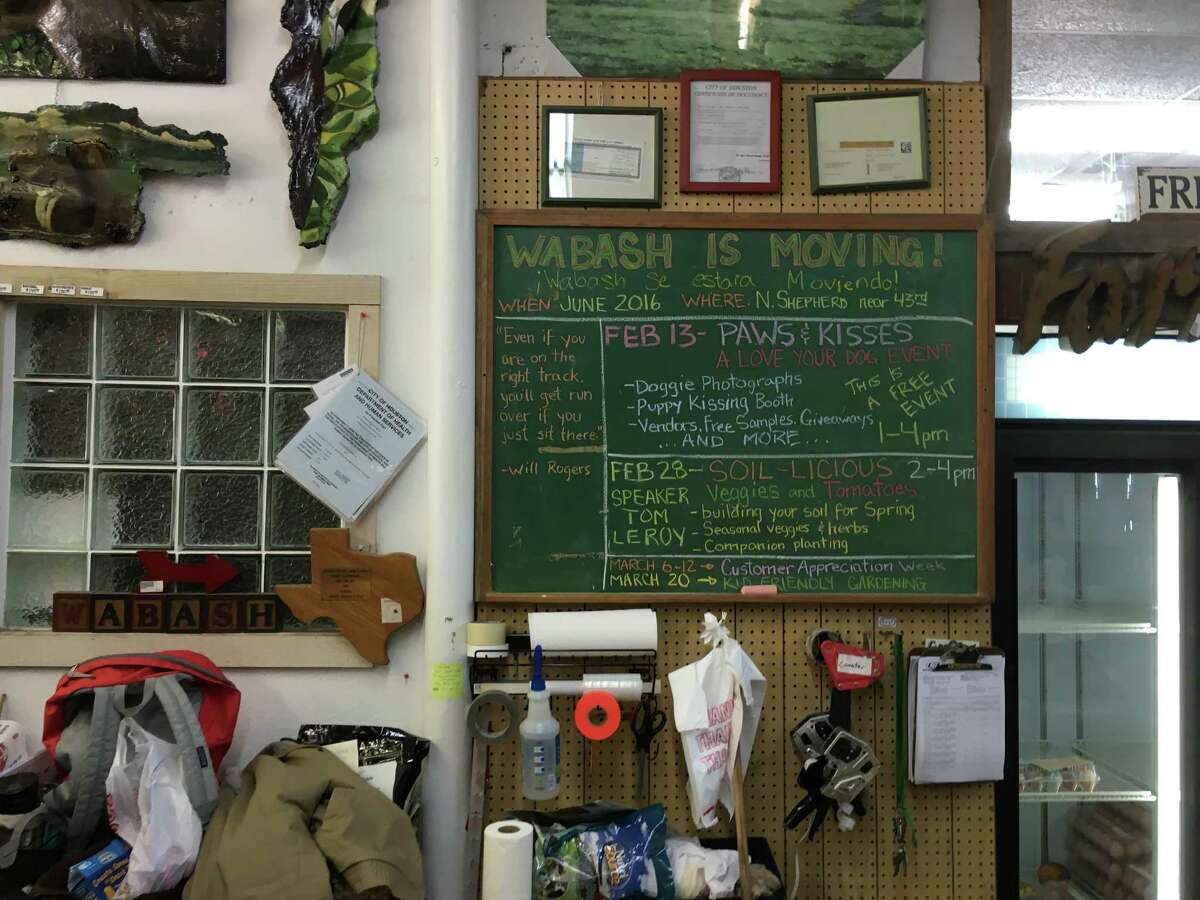 CITY OF HOUSTON
WABASH IS MOVING!
¡Wabash Se estara Moviendo!
WHEN: JUNE 2016 WHERE: N. SHEPHERD near 43rd
"Even if you
are on the
right track,
you'll get run
over if you
just sit there."
-Will Rogers
FEB 13- PAWS & KISSES
A LOVE YOUR DOG EVENT
-Doggie Photographs
-Puppy Kissing Booth
-Vendors, Free Samples, Giveaways
...AND MORE...
THIS IS
A FREE
EVENT
1-4pm
FEB 28- SOIL-LICIOUS 2-4pm
SPEAKER Veggies and Tomatoes
TOM
LEROY
- building your soil for Spring
- Seasonal veggies & herbs
- Companion planting
MARCH 6-12 → Customer Appreciation Week
MARCH 20 → KID FRIENDLY GARDENING
CITY OF HOUSTON
DEPARTMENT OF HEALTH
AND HUMAN SERVICES
WABASH
FRE
Far